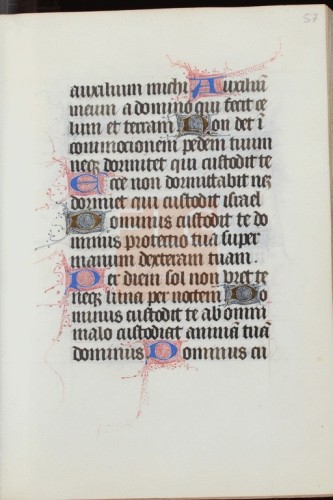 57
auxilium michi Auxiliū
meum a domino qui fecit ce
lum et terram Non det ī
commocionem pedem tuum
neqꝫ dormitet qui custodit te
Ecce non dormitabit neqꝫ
dormiet qui custodit israel
Dominus custodit te do
minus protectio tua super
manum dexteram tuam.
Per diem sol non vret te
neqꝫ luna per noctem Do
minus custodit te ab omni
malo custodiat animā tuā
dominus Dominus cu